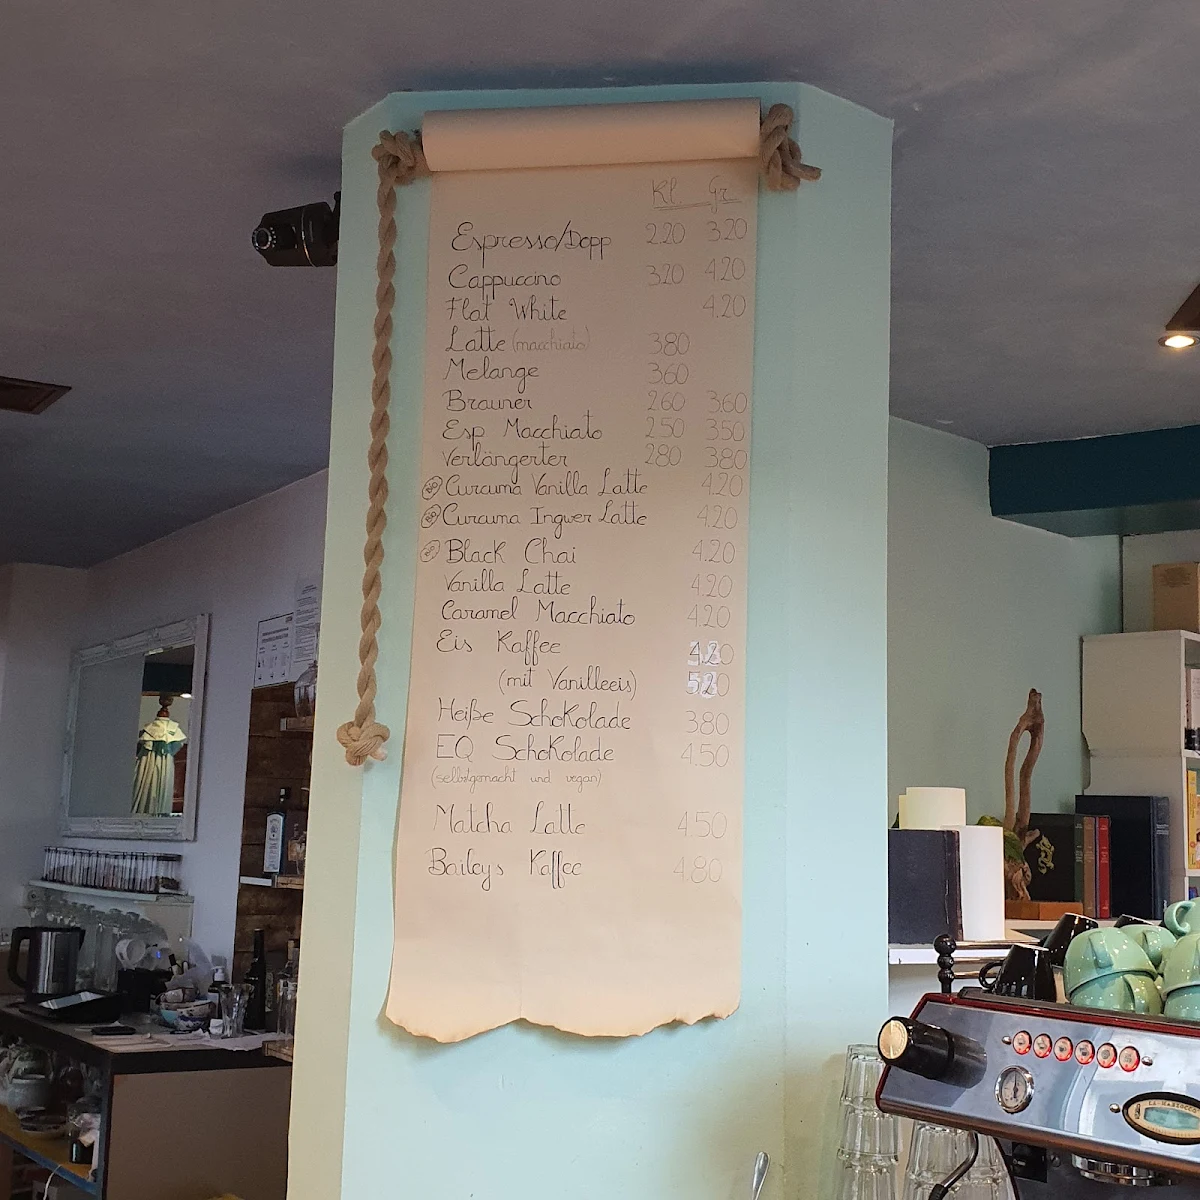 Kl. Gr.
Espresso/Dopp 2.20 3.20
Cappuccino 3.20 4.20
Flat White 4.20
Latte (macchiato) 3.80
Melange 3.60
Brauner 2.60 3.60
Esp Macchiato 2.50 3.50
Verlängerter 2.80 3.80
BIO Curcuma Vanilla Latte 4.20
BIO Curcuma Ingwer Latte 4.20
BIO Black Chai 4.20
Vanilla Latte 4.20
Caramel Macchiato 4.20
Eis Kaffee
(mit Vanilleeis)
Heiße Schokolade 3.80
EQ Schokolade 4.50
(selbstgemacht und vegan)
Matcha Latte 4.50
Baileys Kaffee 4.80
LA MARZOCCO